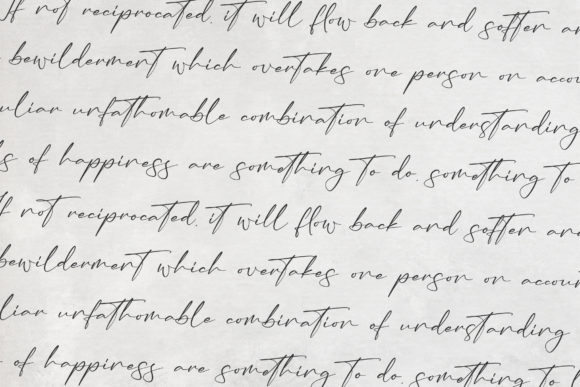 If not reciprocated, it will flow back and soften an
bewilderment which overtakes one person on accou
uliar unfathomable combination of understanding
s of happiness are something to do, something to
If not reciprocated, it will flow back and soften an
bewilderment which overtakes one person on accoun
uliar unfathomable combination of understanding
of happiness are something to do, something to